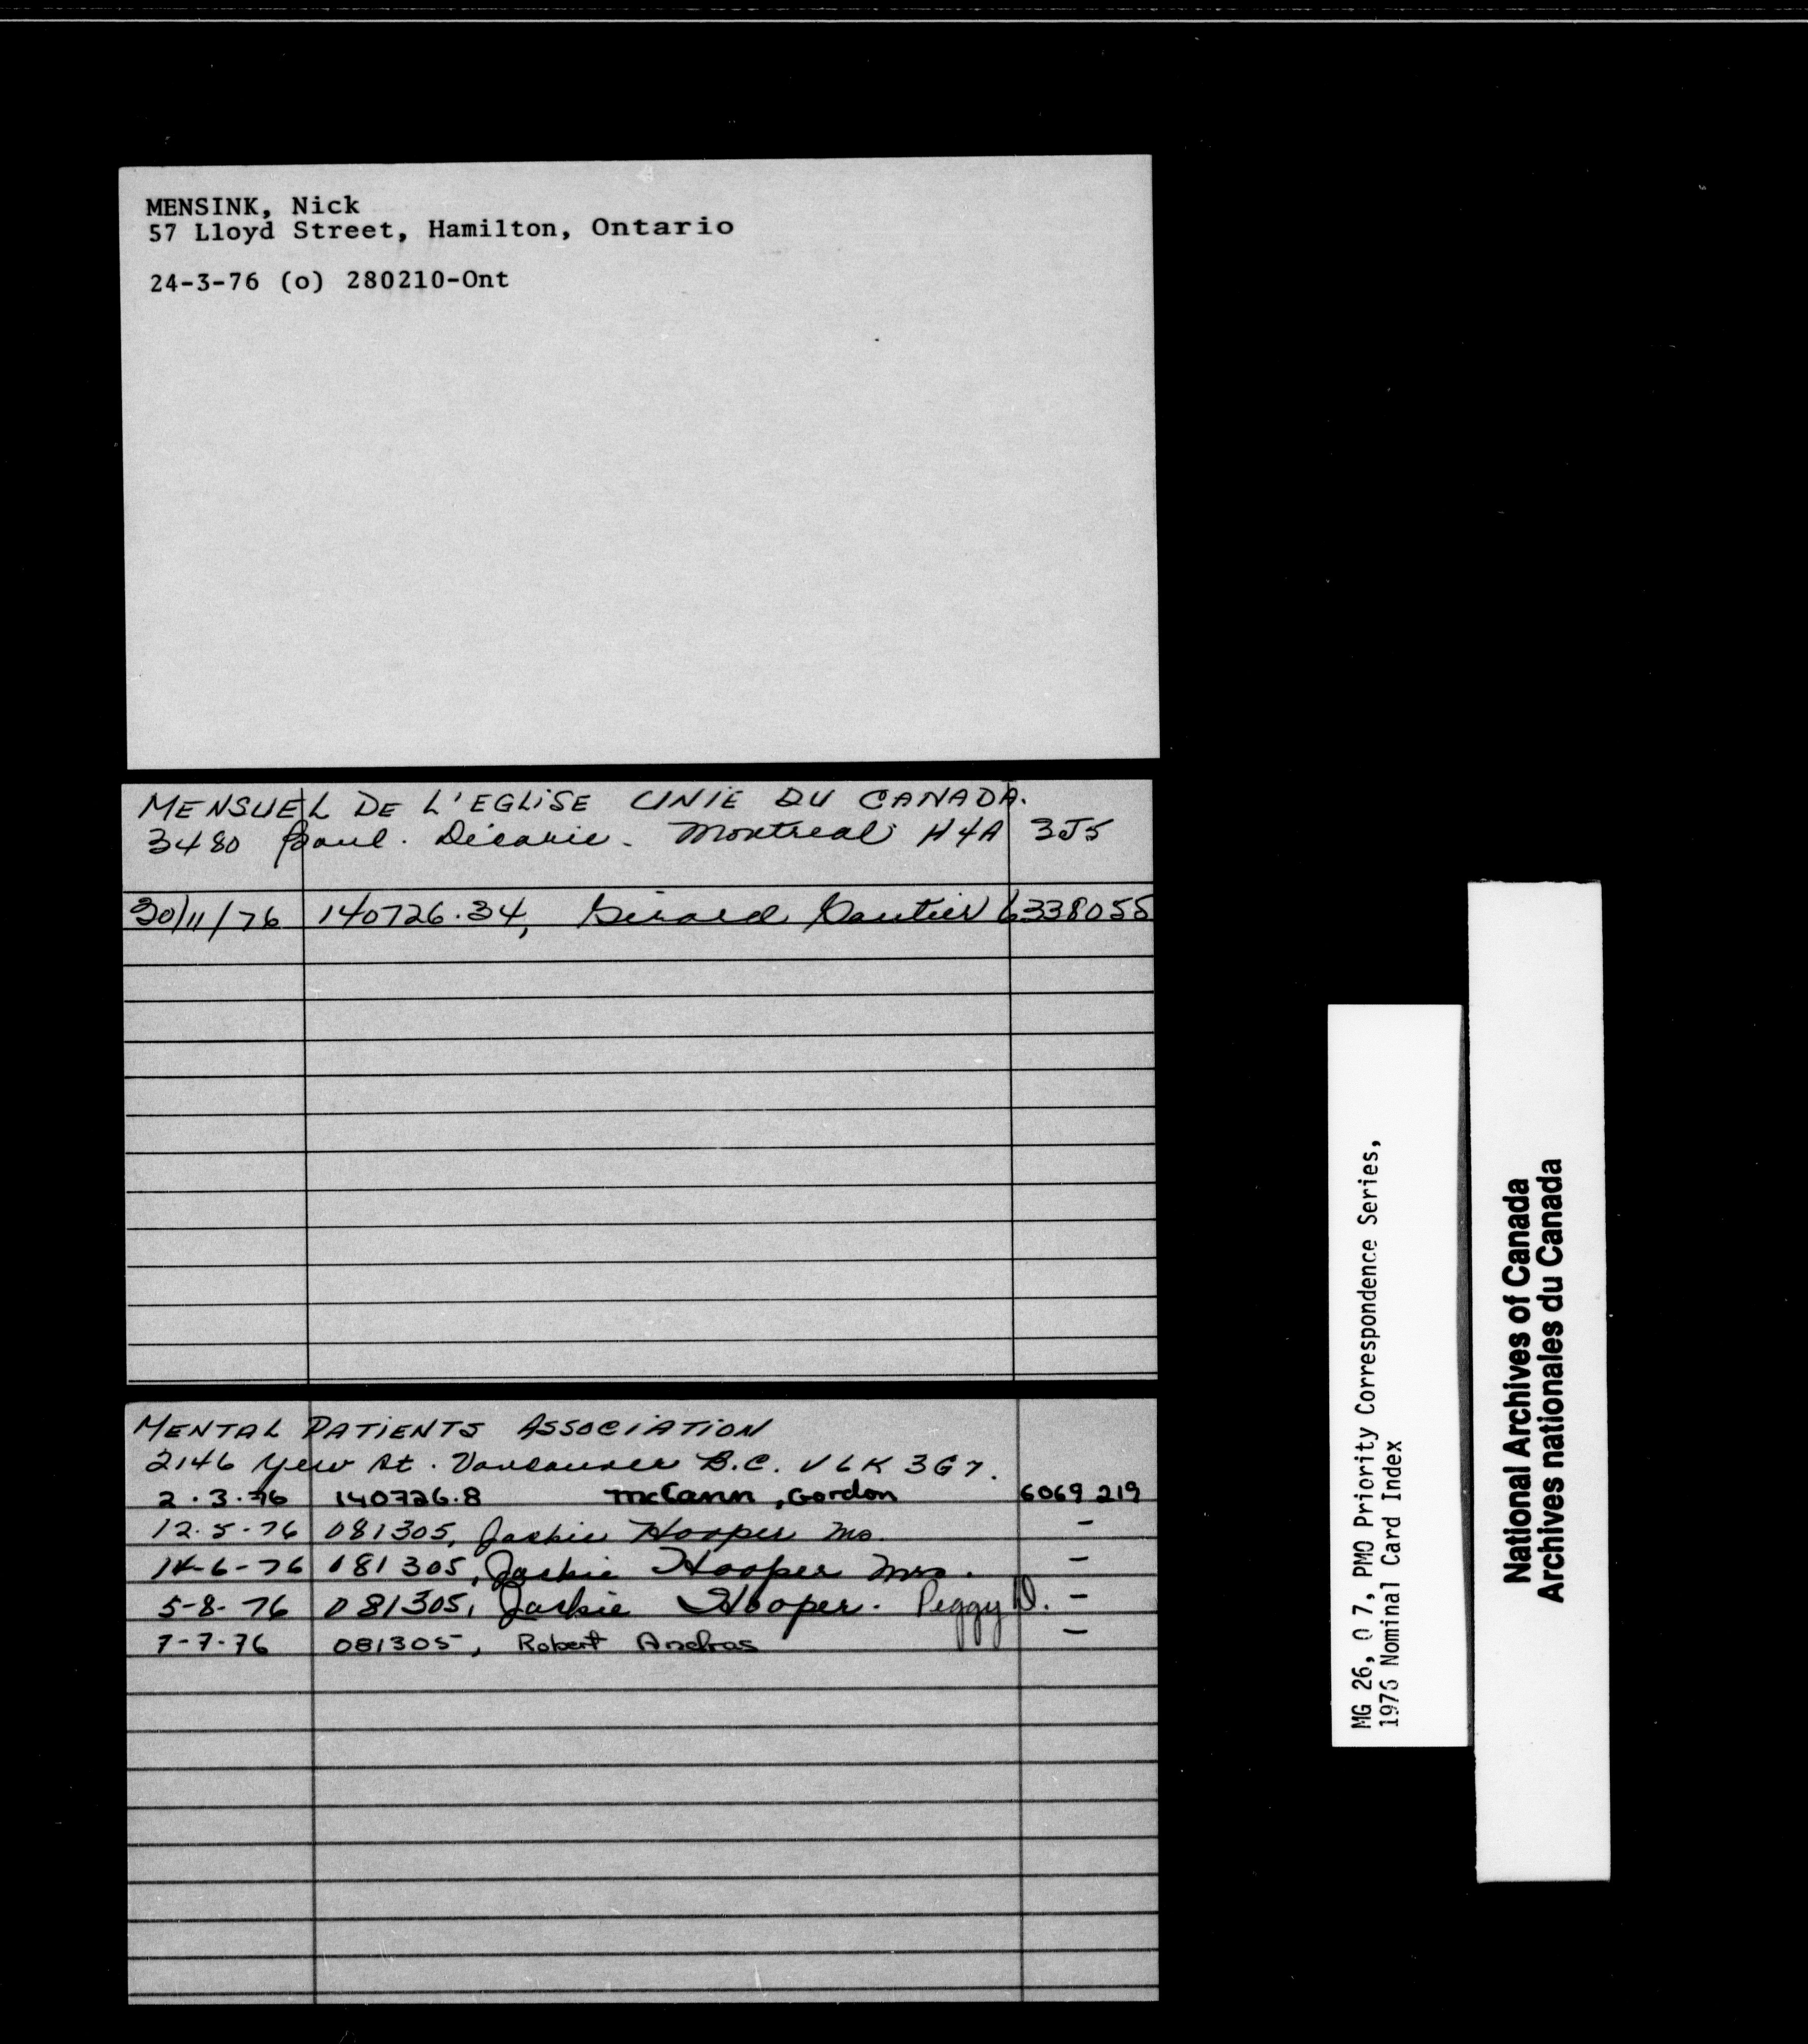 MENSINK, Nick
57 Lloyd Street, Hamilton, Ontario
24-3-76 (o) 280210-Ont
MENSUEL DE L'EGLISE UNIE DU CANADA.
3480 Boul. Décarie. Montreal H4A 3J5
30/11/76 140726.34, Gérard Gautier 6338055
MENTAL PATIENTS ASSOCIATION
2146 Yew St. Vancouver B.C. V6K 3G7.
2.3.76 140726.8 McCann, Gordon 6069 219
12.5-76 081305, Jackie Hooper Ms. -
14-6-76 081305, Jackie Hooper Mrs. -
5-8-76 081305, Jackie Hooper. Peggy D. -
7-7-76 081305, Robert Andras -
MG 26, O 7, PMO Priority Correspondence Series,
1976 Nominal Card Index
National Archives of Canada
Archives nationales du Canada